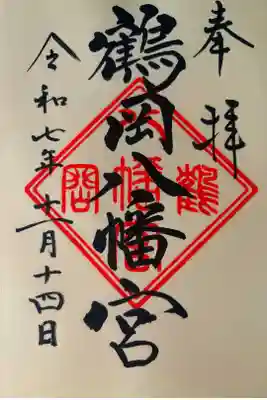 奉拝
鶴岡八幡宮
令和七年十一月十四日
鶴
岡